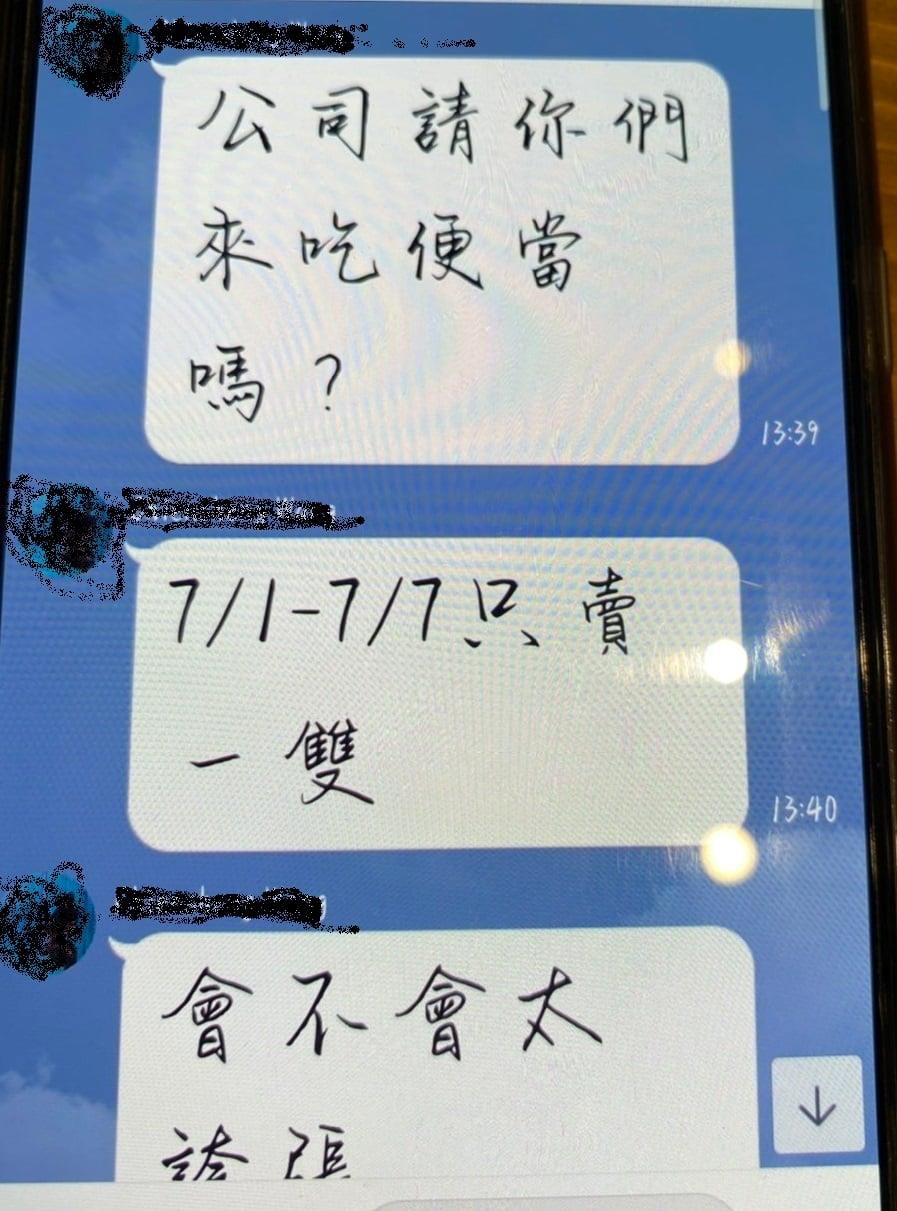 公司請你們
來吃便當
嗎？
13:39
7/1-7/7只賣
一雙
13:40
會不會太
誇張